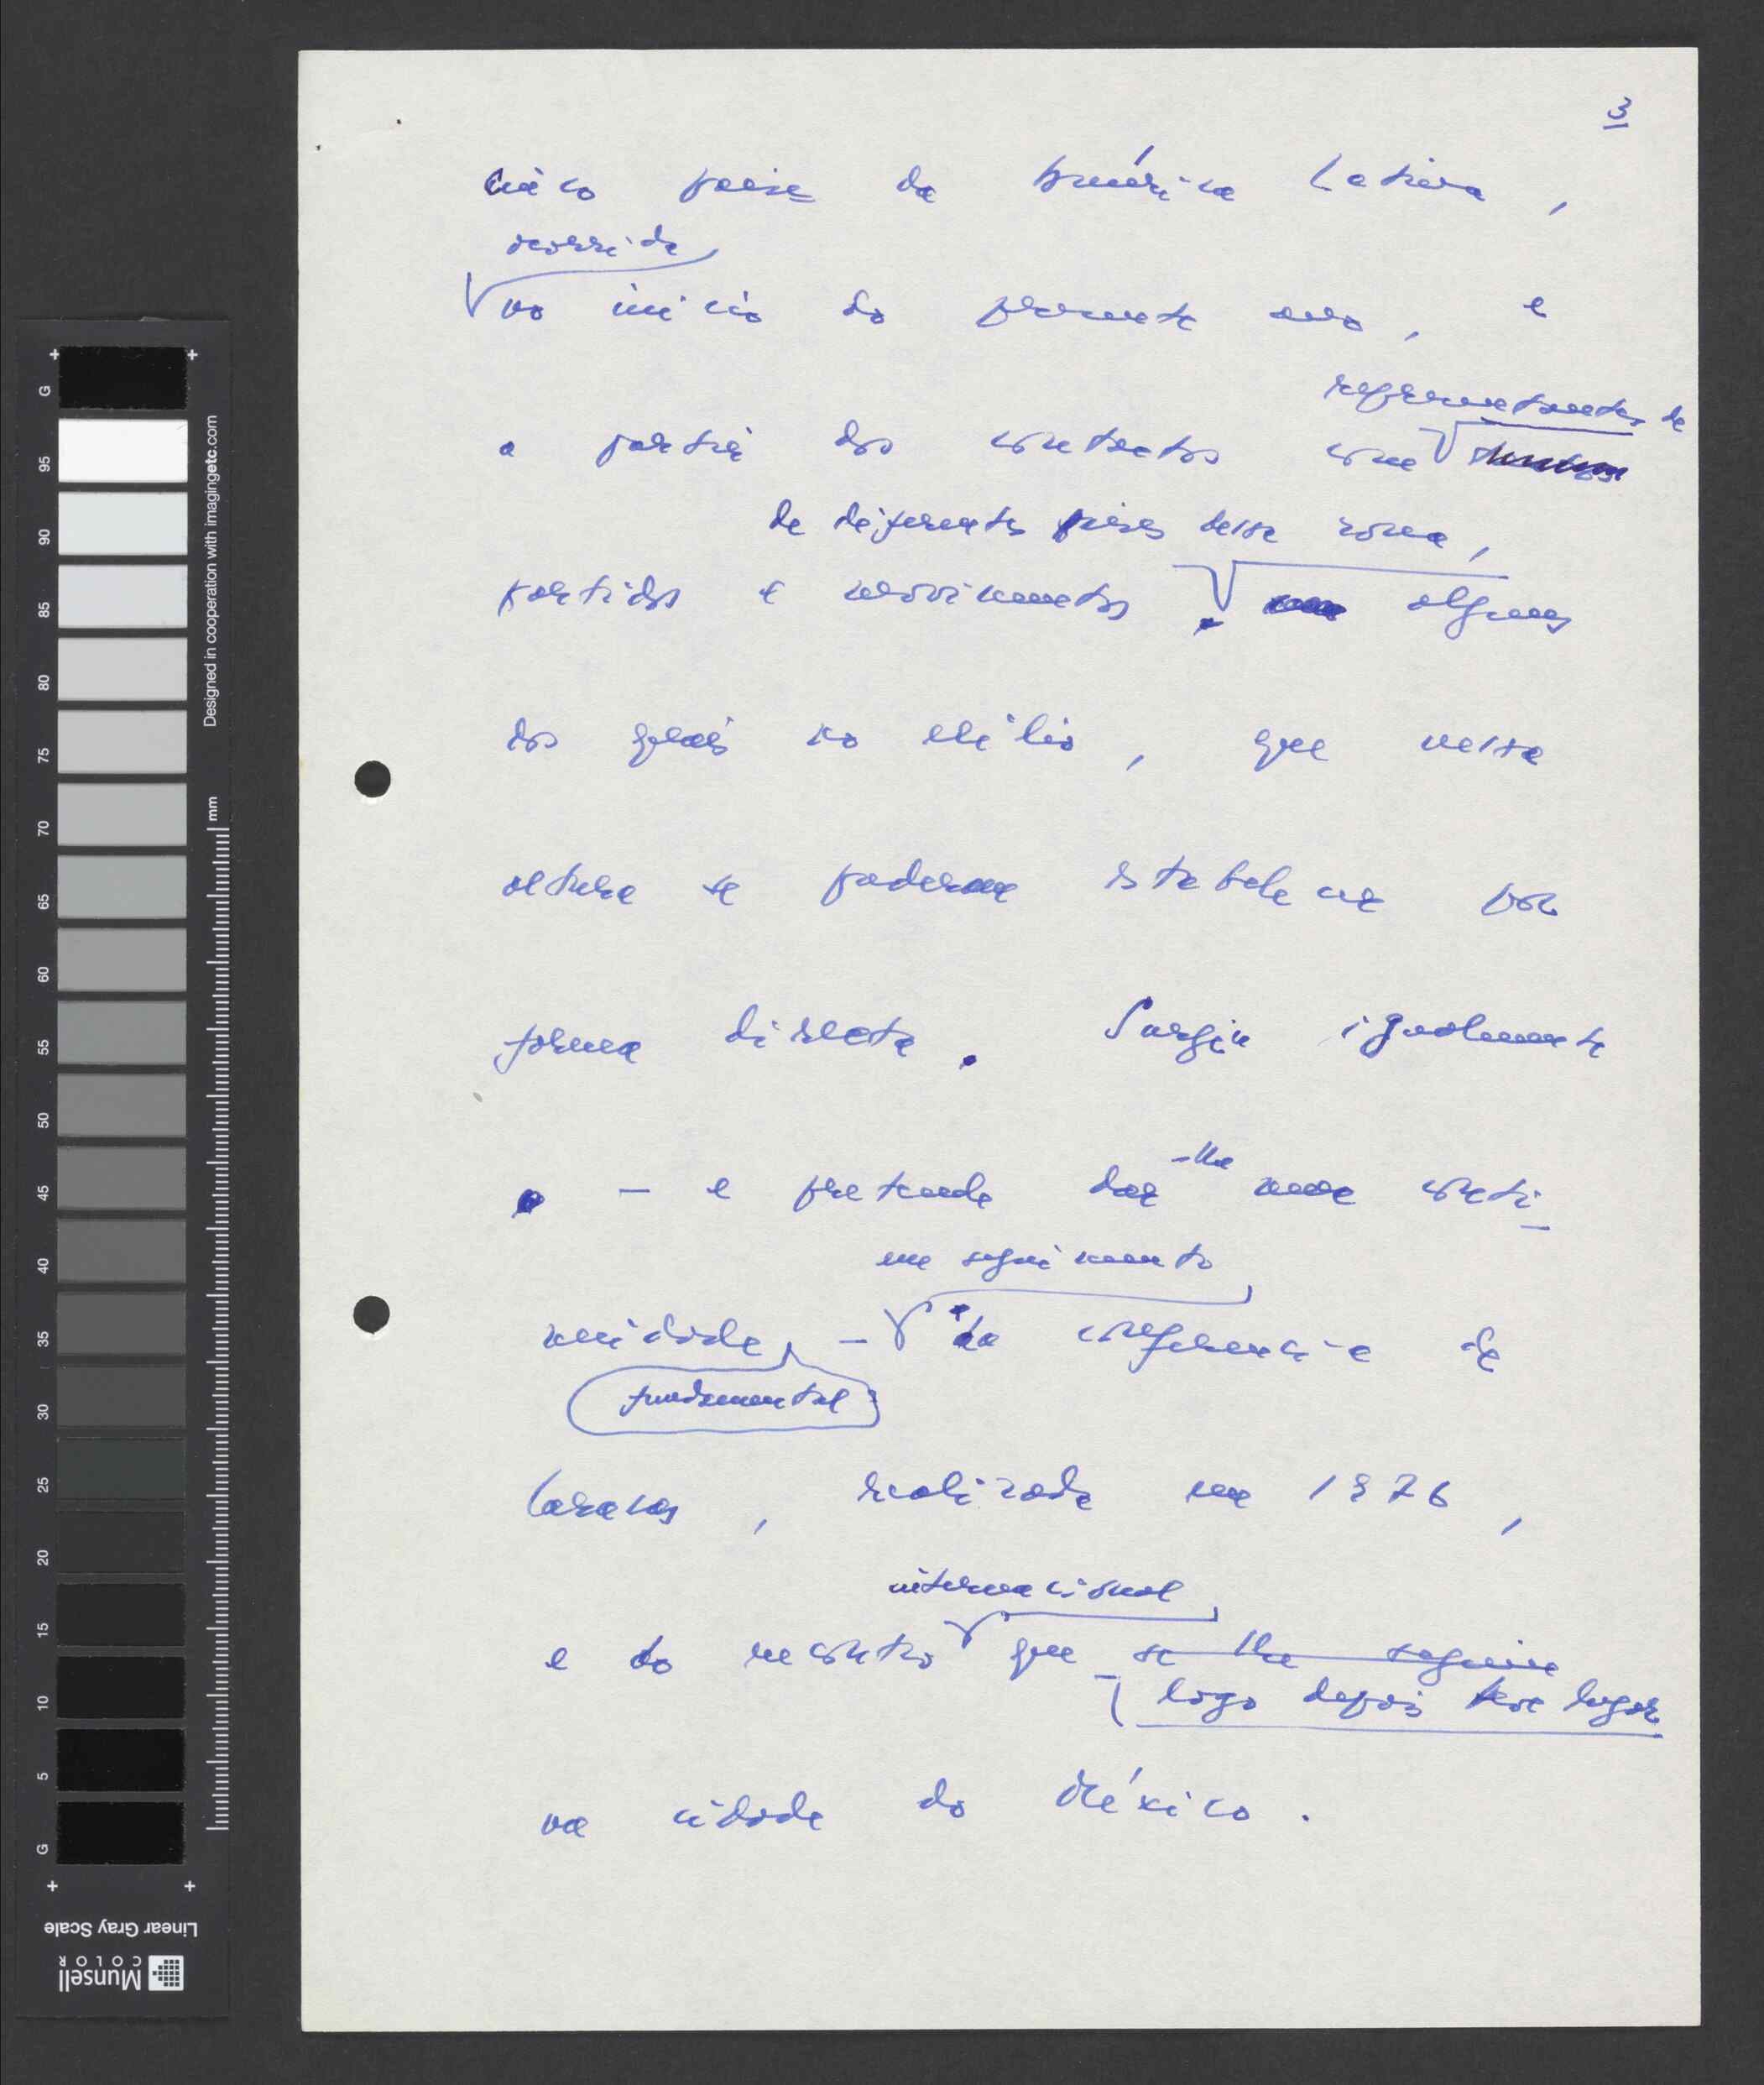 3
cinco países da América Latina,
ocorrida
no início do presente ano, e
representantes de
a partir dos contactos com
de diferentes países dessa zona,
partidos e movimentos, alguns
dos quais no exílio, que nessa
altura se puderam estabelecer por
forma directa. Surgiu igualmente
— e pretende dar -lhe uma conti-
em seguimento
nuidade, — da conferência de
fundamental
Caracas, realizada em 1976,
internacional
e do encontro que se lhe seguiu
logo depois teve lugar
na cidade do México.
G
95
90
85
80
75
70
65
60
55
50
45
40
35
30
25
20
15
10
5
G
Designed in cooperation with imagingetc.com
mm
Linear Gray Scale
Munsell
COLOR